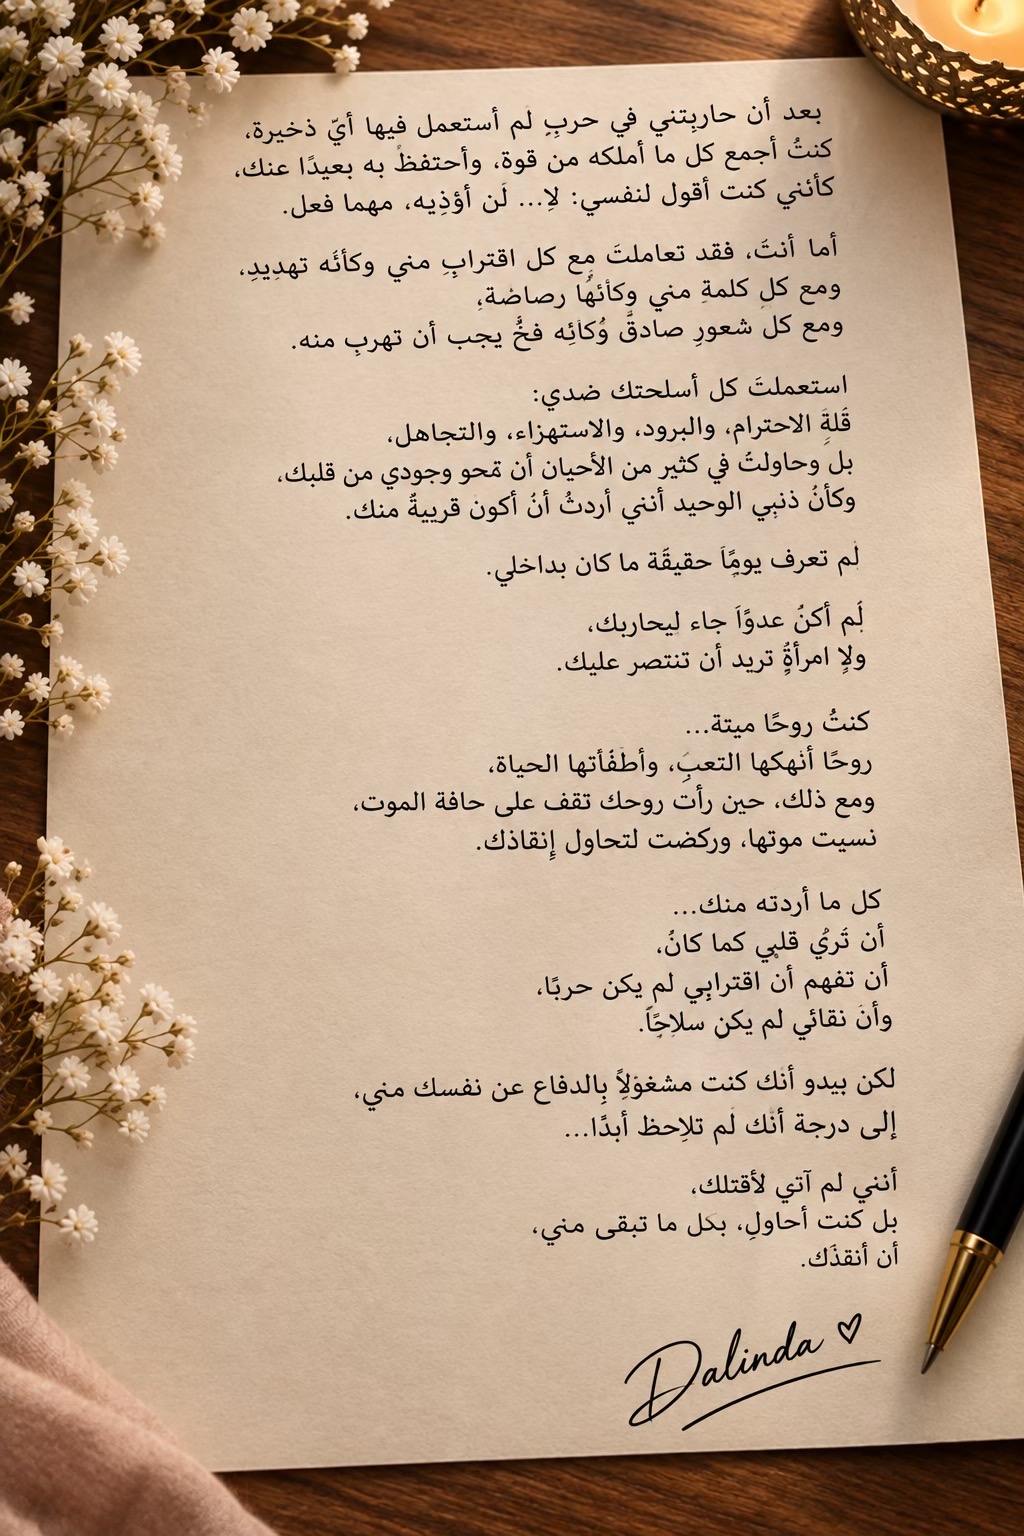 بعد أن حاربتني في حربٍ لم أستعمل فيها أيّ ذخيرة،
كنتُ أجمع كل ما أملكه من قوة، وأحتفظُ به بعيدًا عنك،
كأنني كنت أقول لنفسي: لا... لن أؤذيه، مهما فعل.
أما أنتَ، فقد تعاملتَ مع كل اقترابٍ مني وكأنه تهديدٍ،
ومع كل كلمةٍ مني وكأنها رصاصة،
ومع كل شعورٍ صادقٍ وكأنه فخٌّ يجب أن تهرب منه.
استعملتَ كل أسلحتك ضدي:
قلةَ الاحترام، والبرود، والاستهزاء، والتجاهل،
بل وحاولتُ في كثير من الأحيان أن تمحو وجودي من قلبك،
وكأنُ ذنبي الوحيد أنني أردتُ أنُ أكون قريبةٌ منك.
لم تعرف يومًا حقيقة ما كان بداخلي.
لم أكنُ عدوًا جاء ليحاربك،
ولا امرأةٍ تريد أن تنتصر عليك.
كنتُ روحًا ميتة...
روحًا أنهكها التعب، وأطفأتها الحياة،
ومع ذلك، حين رأت روحك تقف على حافة الموت،
نسيت موتها، وركضت لتحاول إنقاذك.
كل ما أردته منك...
أن تَرىُ قلبي كما كانُ،
أن تفهم أن اقترابي لم يكن حربًا،
وأن نقائي لم يكن سلاحًا.
لكن بيدو أنك كنت مشغولاً بالدفاع عن نفسك مني،
إلى درجة أنك لم تلاحظ أبدًا...
أنني لم آتي لأقتلك،
بل كنت أحاول، بكل ما تبقى مني،
أن أنقذَك.
Dalinda ♡